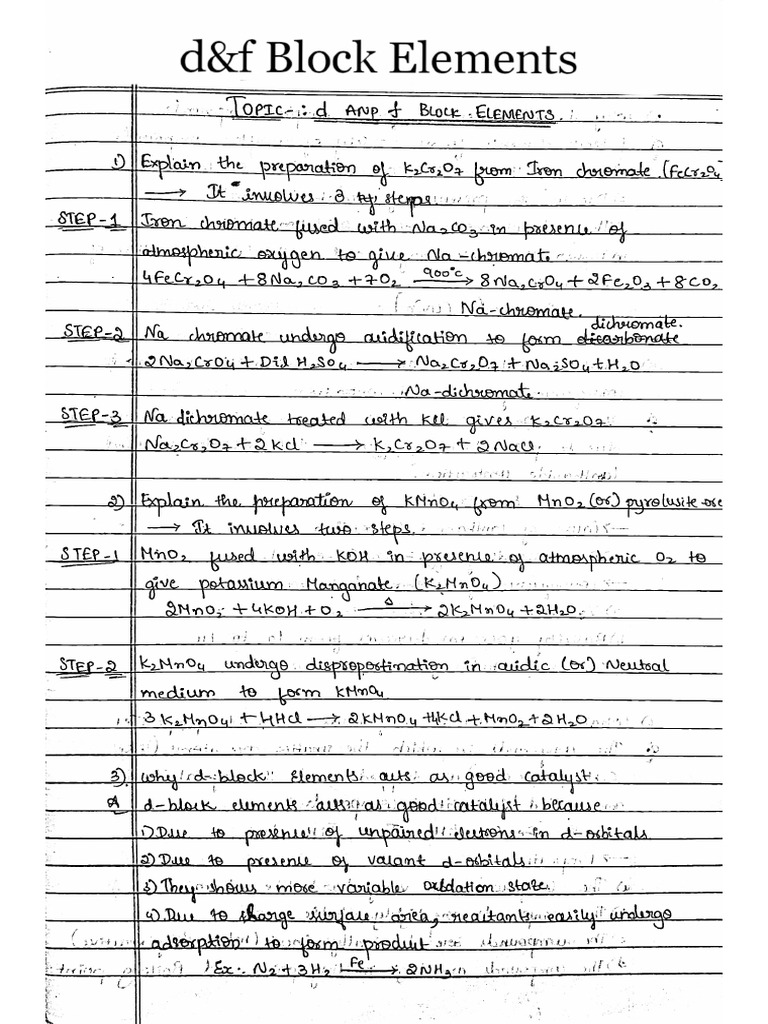 d&f Block Elements
TOPIC-: d AND f BLOCK ELEMENTS.
1) Explain the preparation of K2Cr2O7 from Iron chromate (FeCr2O4
→ It involves 3 steps
STEP-1 Iron chromate fused with Na2CO3 in presence of
atmospheric oxygen to give Na-chromate
4FeCr2O4 + 8Na2CO3 + 7O2 900°C → 8Na2CrO4 + 2Fe2O3 + 8CO2
Na-chromate.
dichromate.
STEP-2 Na chromate undergo acidification to form
2Na2CrO4 + Dil H2SO4 → Na2Cr2O7 + Na2SO4 + H2O
Na-dichromate.
STEP-3 Na dichromate treated with KCl gives K2Cr2O7
Na2Cr2O7 + 2KCl → K2Cr2O7 + 2NaCl.
2) Explain the preparation of KMnO4 from MnO2 (or) pyrolusite ore
→ It involves two steps.
STEP-1 MnO2 fused with KOH in presence of atmospheric O2 to
give potassium Manganate. (K2MnO4)
2MnO2 + 4KOH + O2 Δ → 2K2MnO4 + 2H2O
STEP-2 K2MnO4 undergo dispropostination in acidic (or) Neutral
medium to form KMnO4
3K2MnO4 + 4HCl → 2KMnO4 + 4KCl + MnO2 + 2H2O
3) Why d-block Elements acts as good catalyst.
A d-block elements acts as good catalyst because
1) Due to presence of unpaired electrons in d-orbitals
2) Due to presence of valant d-orbitals
3) They shows more variable oxidation state.
4) Due to large surface area, reactants easily undergo
adsorption to form product
Ex:- N2 + 3H2 Fe → 2NH3